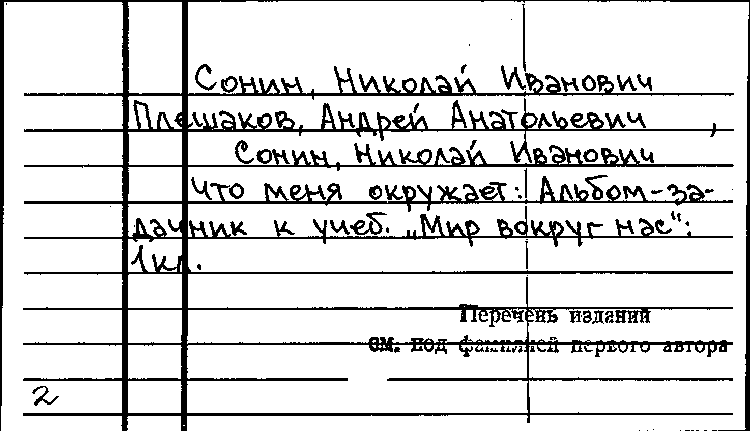 Сонин, Николай Иванович
Плешаков, Андрей Анатольевич ,
Сонин, Николай Иванович
Что меня окружает: Альбом-за-
дачник к учеб. „Мир вокруг нас“:
1кл.
Перечень изданий
см. под фамилией первого автора
2